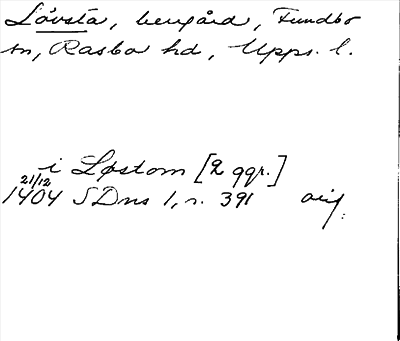 Lövsta, herrgård, Fundbo
sn, Rasbo hd, Upps. l.
i Løstom [2 ggr.]
21/12
1404 SDns 1, n. 391 orig.